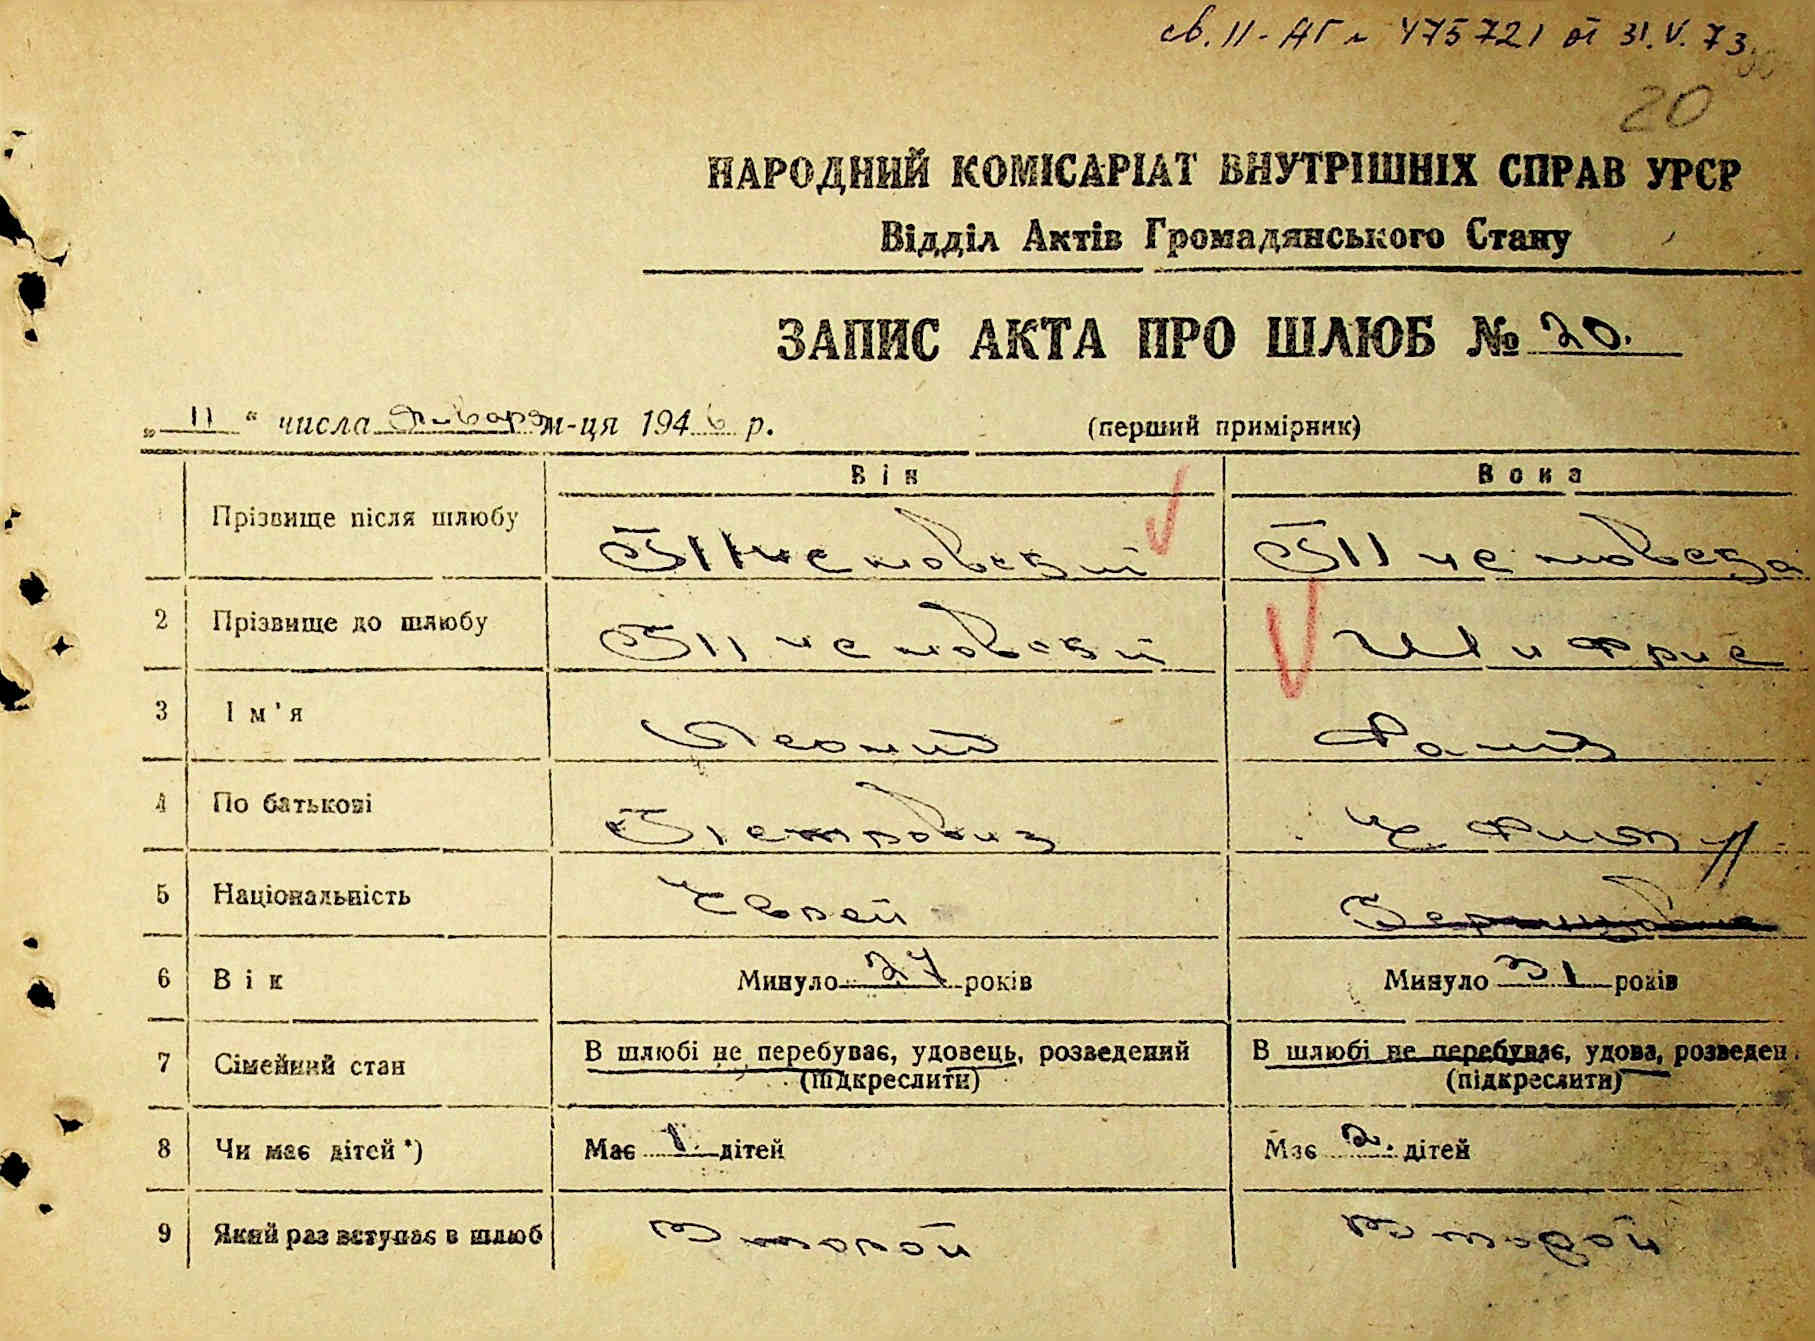 св. II-АГ № 475721 от 31.V.73
20
НАРОДНИЙ КОМІСАРІАТ ВНУТРІШНІХ СПРАВ УРСР
Відділ Актів Громадянського Стану
ЗАПИС АКТА ПРО ШЛЮБ № 20.
„ 11 “ числа Января м-ця 1946 р. (перший примірник)
Він Вона
Прізвище після шлюбу
2 Прізвище до шлюбу Шифрис
3 Ім'я Леонид Фаня
4 По батькові Петрович
5 Національність Еврей
6 Вік Минуло 27 років Минуло 31 років
7 Сімейний стан В шлюбі не перебуває, удовець, розведений В шлюбі не перебуває, удова, розведен
(підкреслити) (підкреслити)
8 Чи має дітей *) Має 1. дітей Має 2. дітей
9 Який раз вступає в шлюб Второй Второй